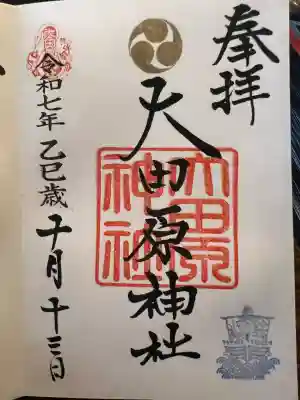 奉拝
大田原神社
大田原
神社
令和七年 乙巳歳 十月十三日